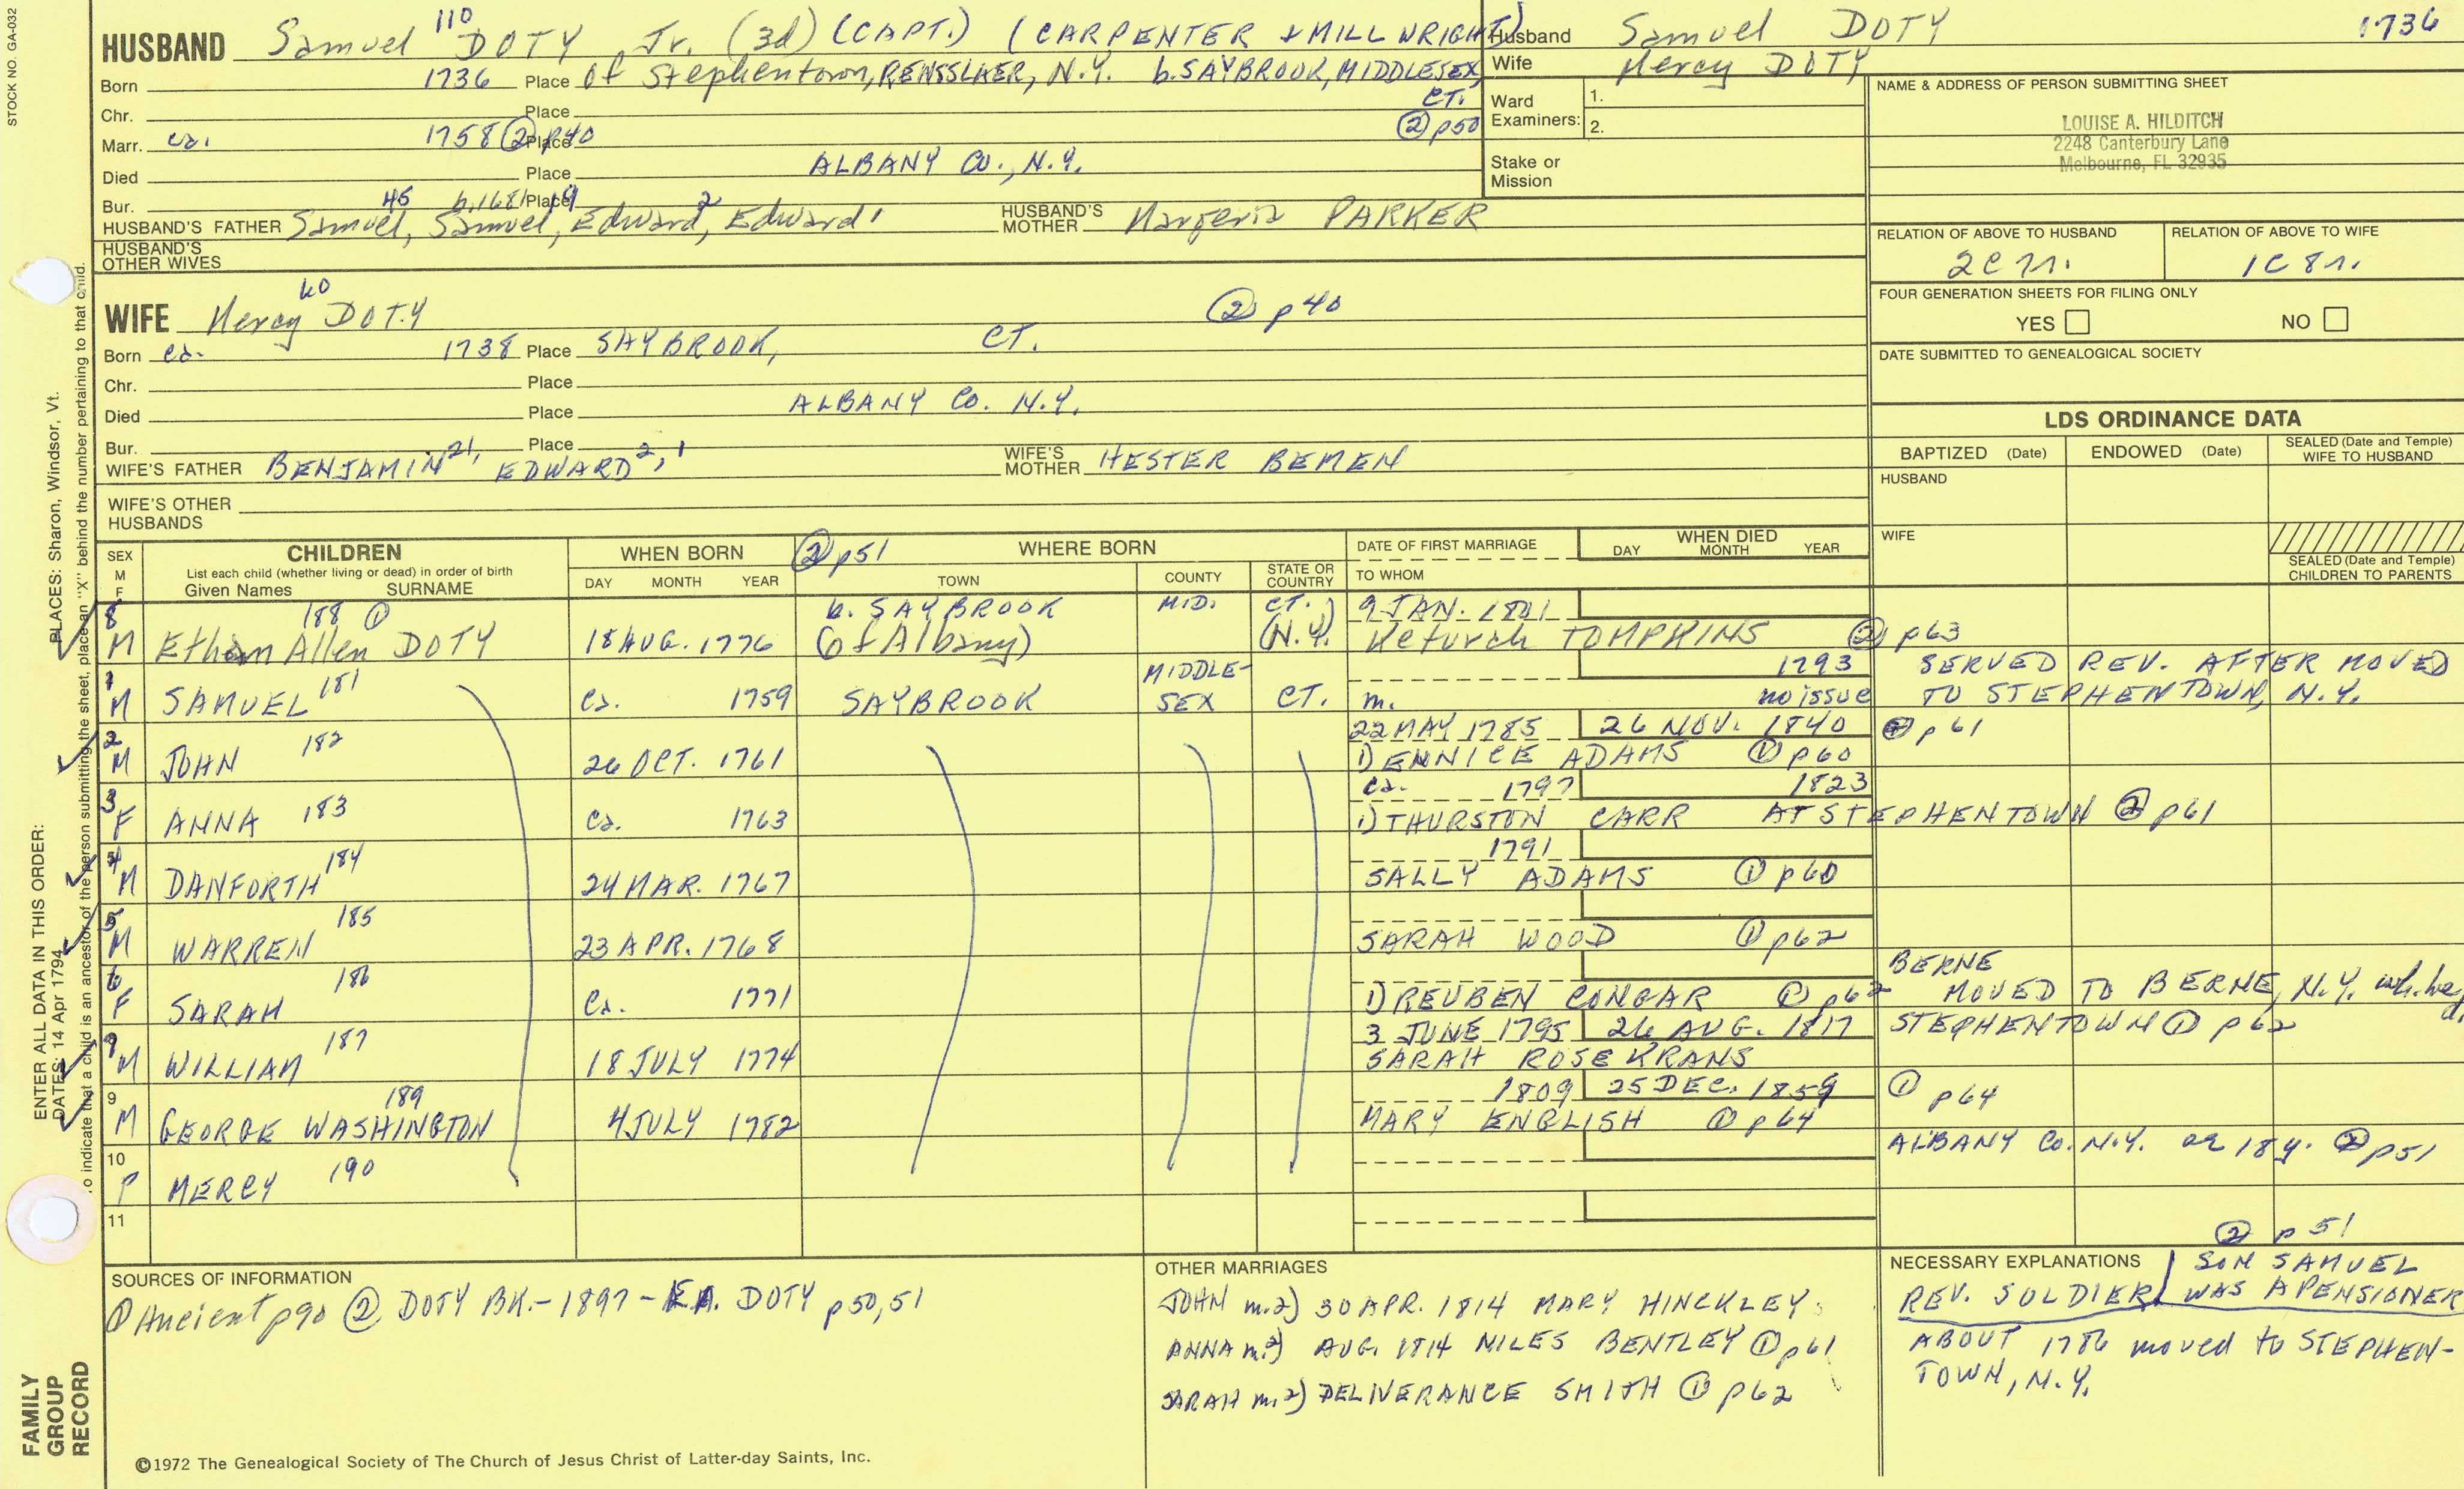 STOCK NO. GA-032
110
HUSBAND Samuel DOTY Jr. (3d) (CAPT.) (CARPENTER & MILLWRIGHT)
Born 1736 Place Of Stephentown, RENSSLAER, N.Y. b. SAYBROOK, MIDDLESEX, CT.
Chr. Place ② p50
Marr. ca. 1758 ② p40 Place
Died Place ALBANY CO., N.Y.
Bur. Place
45 b.1681 19 2
HUSBAND'S FATHER Samuel, Samuel, Edward, Edward 1 HUSBAND'S MOTHER Margeria PARKER
HUSBAND'S OTHER WIVES
60
WIFE Mercy DOTY ② p40
Born ca. 1738 Place SAYBROOK, CT.
Chr. Place
Died Place ALBANY CO. N.Y.
Bur. Place
WIFE'S FATHER BENJAMIN 21, EDWARD 2, 1 WIFE'S MOTHER HESTER BEMEN
WIFE'S OTHER HUSBANDS
Husband Samuel DOTY 1736
Wife Mercy DOTY
Ward Examiners: 1.
2.
Stake or Mission
NAME & ADDRESS OF PERSON SUBMITTING SHEET
LOUISE A. HILDITCH
2248 Canterbury Lane
Melbourne, FL 32935
RELATION OF ABOVE TO HUSBAND RELATION OF ABOVE TO WIFE
2C 7r. 1C 8r.
FOUR GENERATION SHEETS FOR FILING ONLY
YES NO
DATE SUBMITTED TO GENEALOGICAL SOCIETY
LDS ORDINANCE DATA
BAPTIZED (Date) ENDOWED (Date) SEALED (Date and Temple) WIFE TO HUSBAND
HUSBAND
WIFE
SEALED (Date and Temple) CHILDREN TO PARENTS
SEX M F CHILDREN WHEN BORN ② p51 WHERE BORN DATE OF FIRST MARRIAGE WHEN DIED
List each child (whether living or dead) in order of birth
Given Names SURNAME DAY MONTH YEAR TOWN COUNTY STATE OR COUNTRY TO WHOM DAY MONTH YEAR
8 188 ① b. SAYBROOK MID. CT. 9 JAN. 1801
M Ethan Allen DOTY 18 AUG. 1776 (of Albany) (N.Y.) Keturah TOMPKINS ② p63
1 181 MIDDLE- 1793 SERVED REV. AFTER MOVED
M SAMUEL ca. 1759 SAYBROOK SEX CT. m. no issue TO STEPHENTOWN, N.Y.
2 182 22 MAY 1785 26 NOV. 1840 p61
M JOHN 26 OCT. 1761 1) ENNICE ADAMS ① p60
3 183 ca. 1797 1823
F ANNA ca. 1763 1) THURSTON CARR AT STEPHENTOWN ② p61
4 184 1791
M DANFORTH 24 MAR. 1767 SALLY ADAMS ① p60
5 185
M WARREN 23 APR. 1768 SARAH WOOD ① p62
6 186 BERNE
F SARAH ca. 1771 1) REUBEN CONGAR ① p62 MOVED TO BERNE, N.Y.
7 187 3 JUNE 1795 26 AUG. 1817 STEPHENTOWN ① p62
M WILLIAM 18 JULY 1774 SARAH ROSEKRANS
9 189 1809 25 DEC. 1859 ① p64
M GEORGE WASHINGTON 4 JULY 1782 MARY ENGLISH ① p64
10 190 ALBANY CO. N.Y. ae 18 y. ② p51
F MERCY
11
② p51
SOURCES OF INFORMATION
① Ancient p90 ② DOTY BK.-1897-E.A. DOTY p50,51
OTHER MARRIAGES
JOHN m.2) 30 APR. 1814 MARY HINCKLEY
ANNA m.2) AUG. 1814 NILES BENTLEY ① p61
SARAH m.2) DELIVERANCE SMITH ① p62
NECESSARY EXPLANATIONS SON SAMUEL
REV. SOLDIER WAS A PENSIONER
ABOUT 1786 moved to STEPHEN-
TOWN, N.Y.
©1972 The Genealogical Society of The Church of Jesus Christ of Latter-day Saints, Inc.
FAMILY GROUP RECORD
ENTER ALL DATA IN THIS ORDER:
DATES: 14 Apr 1794
PLACES: Sharon, Windsor, Vt.
To indicate that a child is an ancestor of the person submitting the sheet, place an "X" behind the number pertaining to that child.